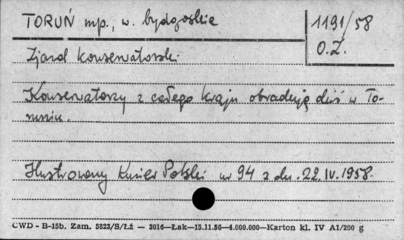 TORUŃ mp., w. bydgoskie
1191/58
O.Z.
Zjazd konserwatorski.
Konserwatorzy z całego kraju obradują dziś w To-
runiu.
Ilustrowany Kurier Polski nr 94 z dn. 22.IV.1958.
CWD - B-15b. Zam. 5823/S/Łż — 3016—Łak—15.11.56—4.000.000—Karton kl. IV A1/200 g